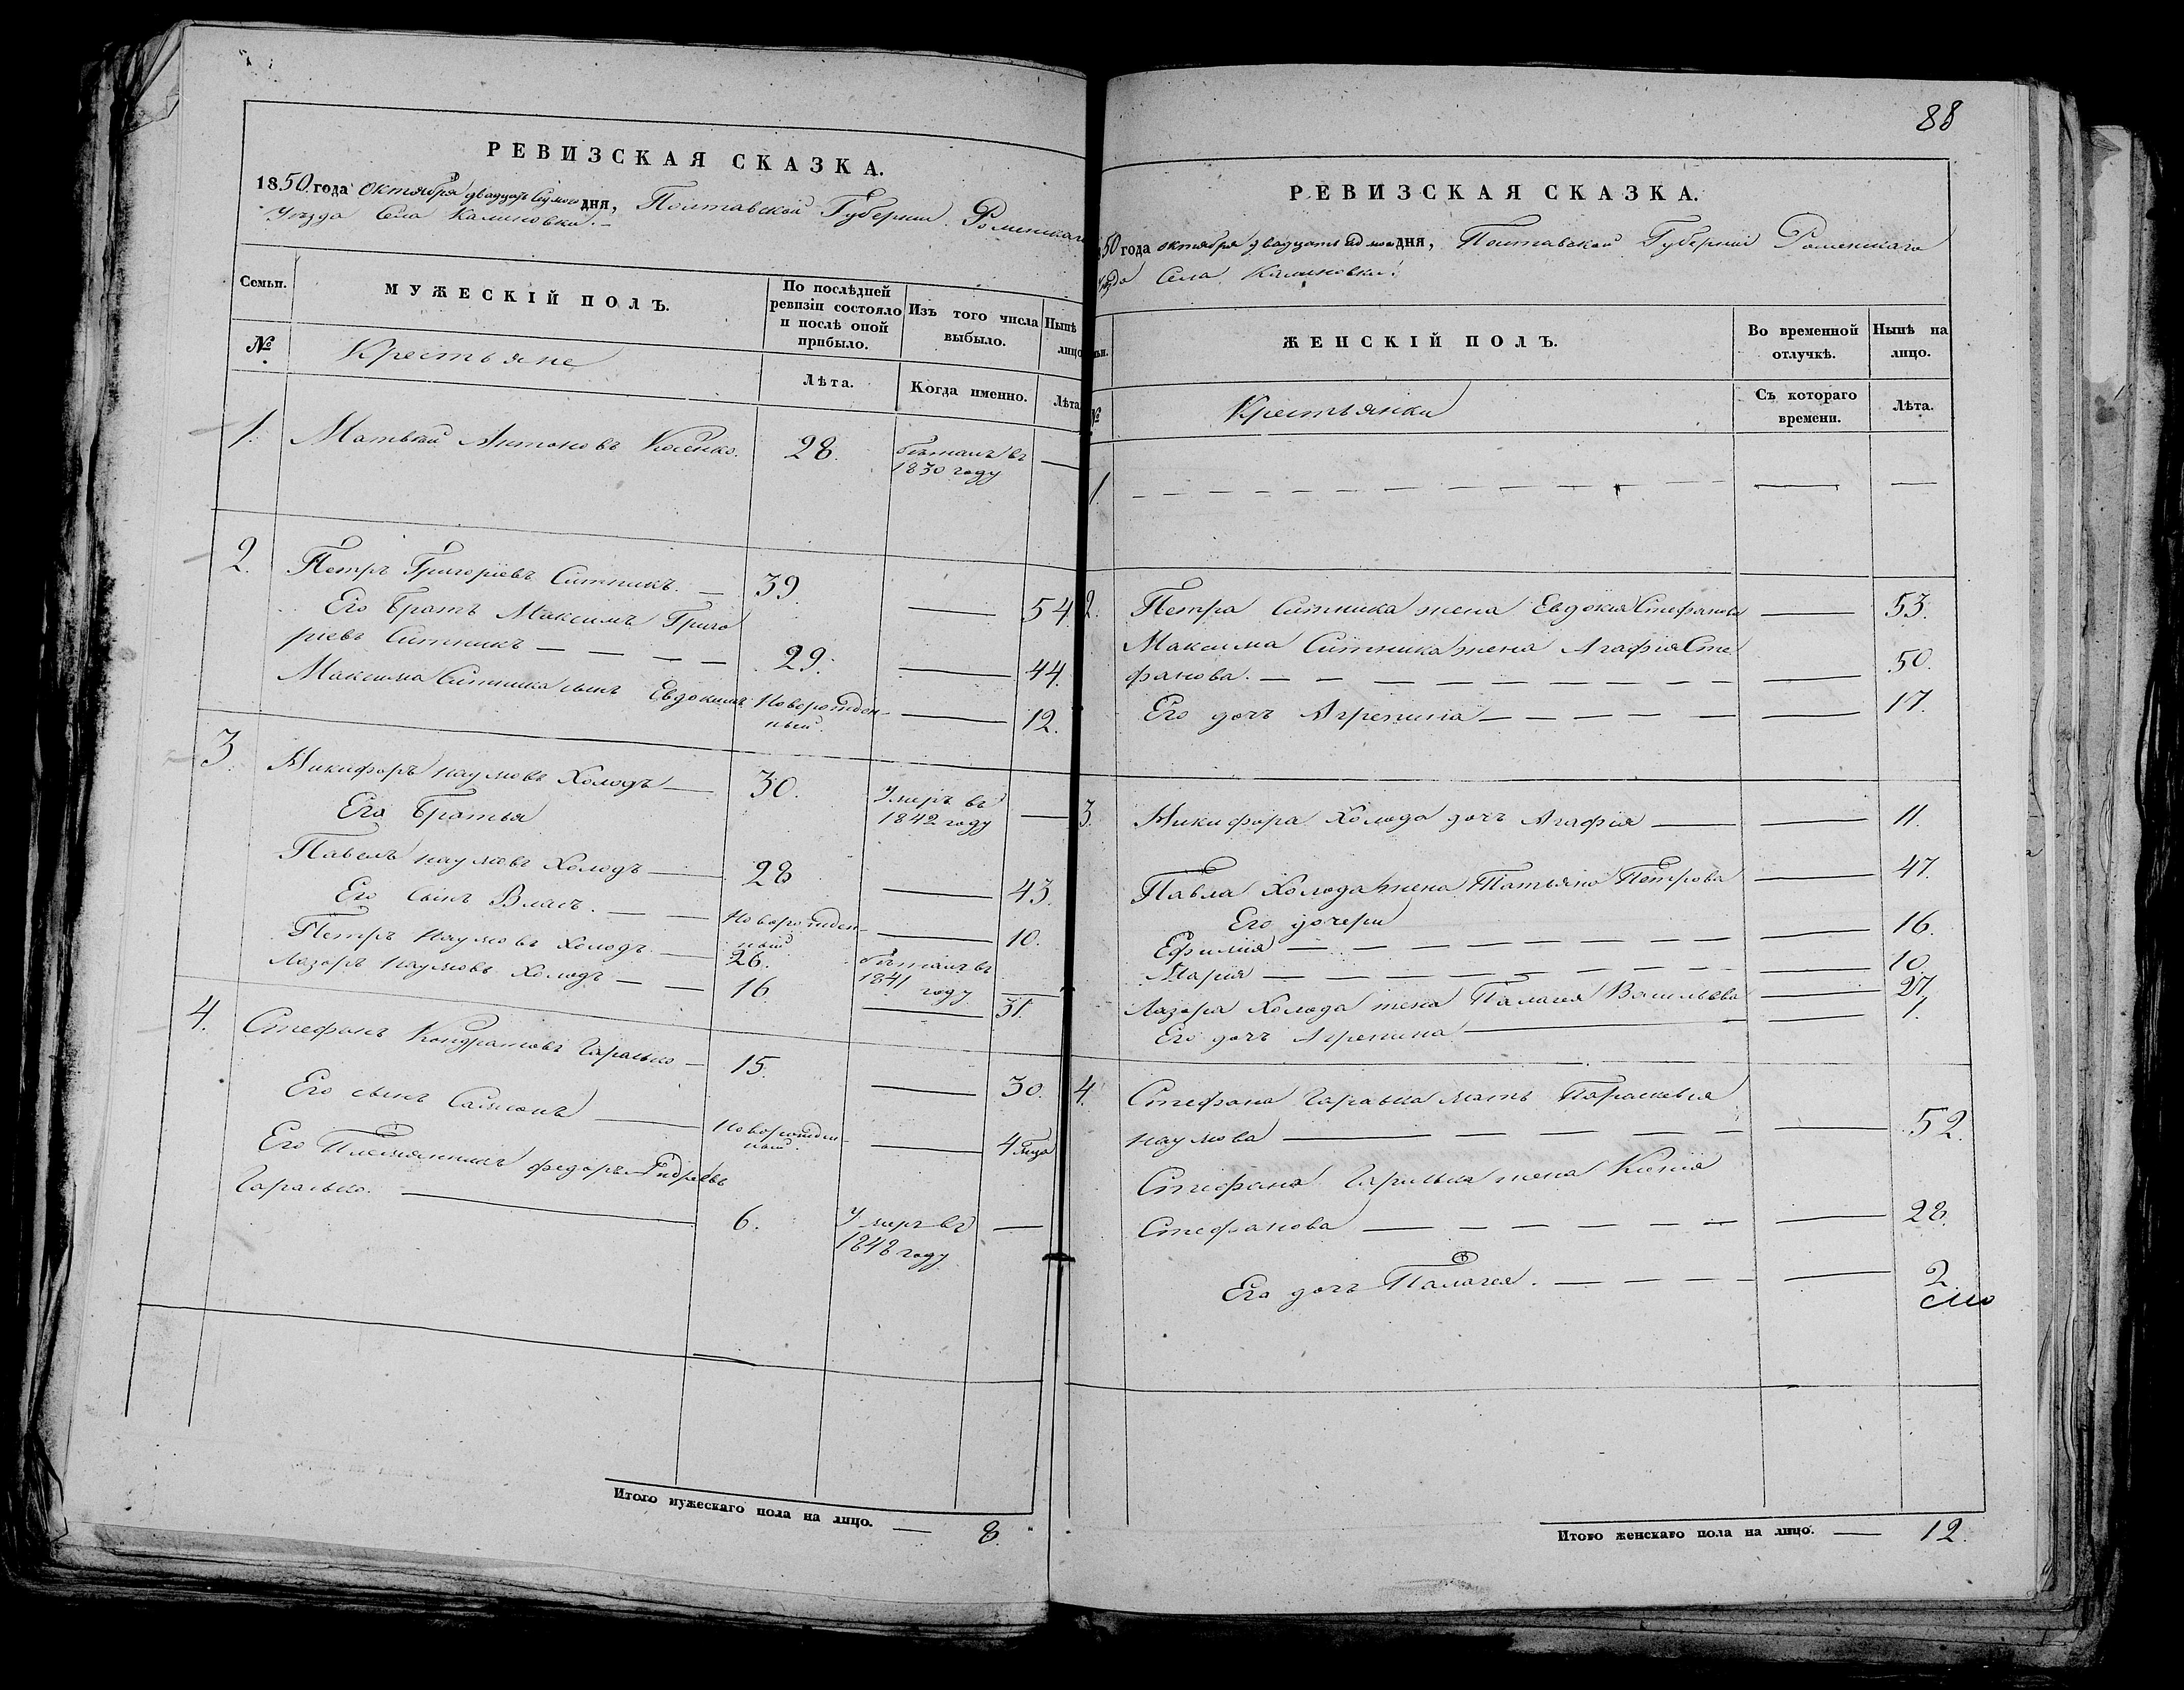 РЕВИЗСКАЯ СКАЗКА.
1850 года Октября двадцать седьмого дня, Полтавской Губернии Роменскаго
Уезда Села Калиновки.
Семьи. МУЖЕСКІЙ ПОЛЪ. По послѣдней ревизіи состояло и послѣ оной прибыло. Изъ того числа выбыло. Нынѣ лицо
№ Крестьяне Лѣта. Когда именно. Лѣта
1. Матвей Антоновъ Косенко. 28. бежалъ въ
1830 году —
2. Петръ Григорьевъ Ситникъ. — 39. — 54
Его братъ Максимъ Григо
рьевъ Ситникъ — — — — 29. — 44.
Максима Ситника сынъ Евдокимъ Новорожден-
ный. — 12.
3. Никифоръ Наумовъ Холодъ — 30. Умеръ въ
1842 году —
Его братья
Павелъ Наумовъ Холодъ — 28 — 43.
Его сынъ Власъ. — — Новорожден-
ный — 10.
Петръ Наумовъ Холодъ — 26. бежалъ въ
1841 году —
Лазарь Наумовъ Холодъ — — 16. — 31.
4. Стефанъ Кондратовъ Гаранько — 15. — 30.
Его сынъ Самсонъ — Новорожден-
ный. — 4
Его Племянникъ Федоръ
— 6. Умеръ въ —
1848 году
Итого мужескаго пола на лицо. — 8.
88
РЕВИЗСКАЯ СКАЗКА.
50 года октября двадцать седьмого дня, Полтавской Губернии Роменскаго
Села Калиновки.
ЖЕНСКІЙ ПОЛЪ. Во временной отлучкѣ. Нынѣ на лицо.
№ Крестьянки Съ котораго времени. Лѣта.
1. — — — — — — — —
2. Петра Ситника жена Евдокия Стефанова — 53.
Максима Ситника жена Агафия Сте
фанова. — — — — — — — 50.
Его дочь Агрепина — — — — — 17.
3. Никифора Холода дочь Агафия — — 11.
Павла Холода жена Татьяна Петрова — 47.
Его дочери
Ефимия — — — — — — — 16.
Мария — — — — — — — 10.
Лазаря Холода жена Палагея Васильева — 27.
Его дочь Агрепина — — 1.
4. Стефана Гаранька мать Параскевия
Наумова — — — — — 52.
Стефана Гаранька жена Ксения
Стефанова — — — — — — 28.
Его дочь Палагея. — — — — — 2
Итого женскаго пола на лицо. — 12.